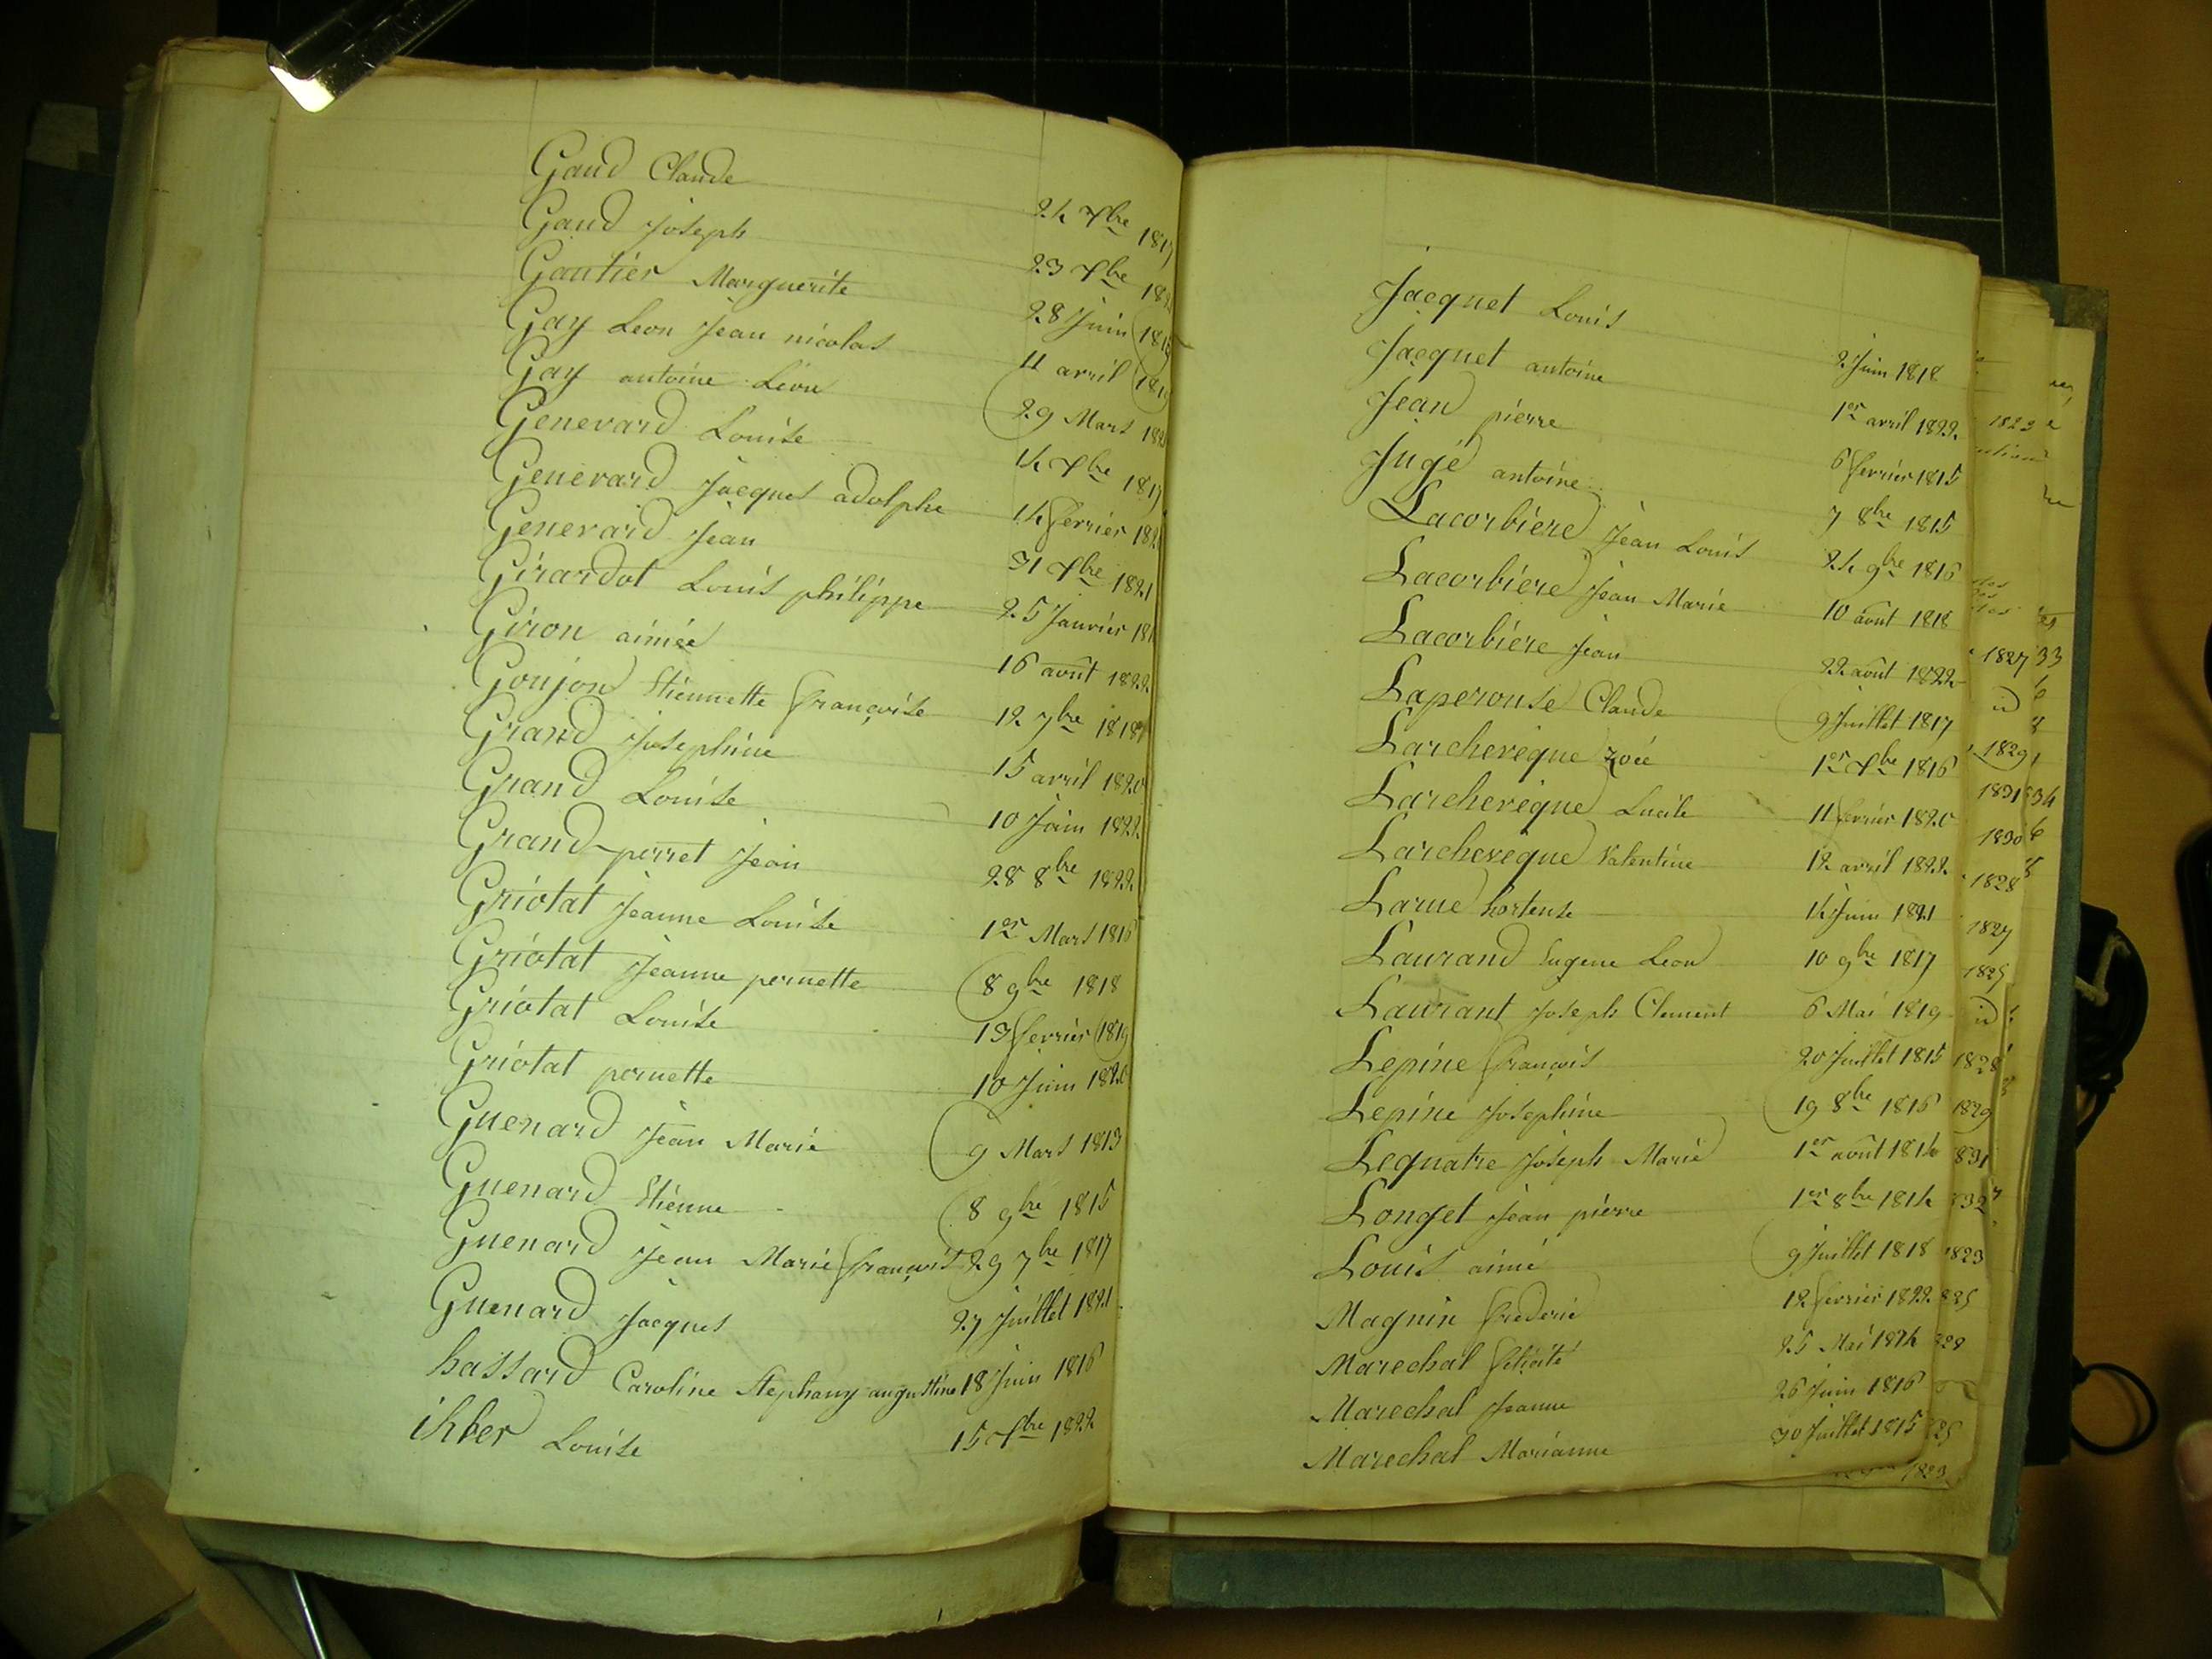 Gaud Claude 24 Xbre 1817
Gaud Joseph 23 Xbre
Gautier Marguerite 28 Juin
Gay Leon Jean nicolas 11 avril
Gay antoine Léon 29 Mars
Genevard Louise 14 Xbre 1817
Genevard Jacques adolphe 14 fevrier
Genevard Jean 31 Xbre 1821
Girardot Louis philippe 25 Janvier
Giron aimée 16 août 1822
Goujon Etiennette françoise 12 7bre 1818
Grand Josephine 15 avril 1820
Grand Louise 10 Juin 1822
Grand-perret Jean 28 8bre 1822
Griotat Jeanne Louise 1er Mars 1816
Griotat Jeanne pernette 8 9bre 1818
Griotat Louise 13 fevrier 1819
Griotat pernette 10 Juin 1820
Guenard Jean Marie 9 Mars 1813
Guenard Etienne 8 9bre 1815
Guenard Jean Marie françois 29 7bre 1817
Guenard Jacques 27 Juillet 1821
hassard Caroline Stephany augustine 18 Juin 1816
ikber Louise 15 Xbre 1822
Jacquet Louis 2 Juin 1818
Jacquet antoine 1er avril 1822
Jean pierre 6 fevrier 1815
Jugé antoine 7 8bre 1815
Lacorbiere Jean Louis 24 9bre 1816
Lacorbiere Jean Marie 10 août 1818
Lacorbiere Jean 22 août 1822
Laperouse Claude 9 Juillet 1817
Larcheveque zoé 1er Xbre 1816
Larcheveque Lucile 11 fevrier 1820
Larcheveque Valentine 12 avril 1822
Larue hortense 14 Juin 1821
Laurand Eugene Leon 10 9bre 1817
Laurant Joseph Clement 6 Mai 1819
Lepine françois 20 Juillet 1815
Lepine Josephine 19 8bre 1816
Lequatre Joseph Marie 1er août 1814
Longet Jean pierre 1er 8bre 1814
Louis aimé 9 Juillet 1818
Magnin frederic 12 fevrier 1822
Marechal felicité 25 Mai 1814
Marechal Jeanne 26 Juin 1816
Marechal Marianne 30 Juillet 1815
1823
1827
1829
1831
1830
1828
1827
1825
1828
1829